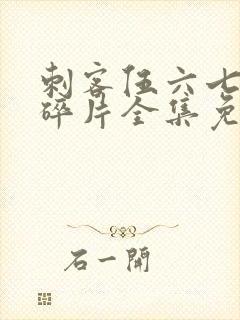 刺客伍六七
碎片全集免
石一開